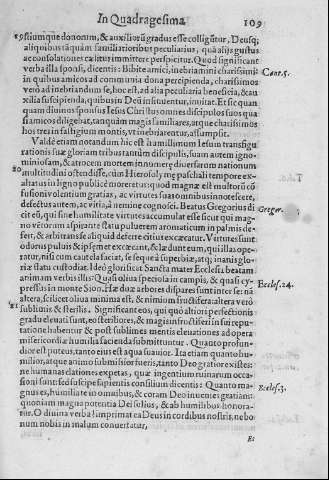 In Quadragesima
109
19 ssiumque donorum, & auxiliorū gradus esse colligūtur, Deusq;
aliquibus tāquam familiarioribus peculiarius, quā alijs gustus
ac consolationes cælitus immittere perspicitur. Quod significant
verba illa sponsi, dicentis: Bibite amici, inebriamini charissimi: Cant. 5.
in quibus amicos ad communia dona percipienda, charissimos
verò ad inebriandum se, hoc est, ad alia peculiaria beneficia, & au
xilia suscipienda, quibus in Deū insituentur, inuitat. Et sic quā
quam diuimus sponsus Iesus Christus omnes discipulos suos qua
si amicos diligebat, tanquām magis familiares, atque charissimos
hos tres in fastigium montis, vt inebriarentur, assumpsit.
Valdè etiam notandum hic est humillimum Iesum transfigu
rationis suæ gloriam tribus tantùm discipulis, suam autem igno-
miniosam, & atrocem mortem innumere diuersarum nationum
20 multitudini ostendisse, cùm Hierosolymæ paschali tempore ex-
altatus in ligno publicè moreretur: quod magnæ est multorū cō
fusioni volentium gratias, ac virtutes suas omnibus innotescere,
defectus autem, ac vitia, à nemine cognosci. Beatus Gregorius di Gregor.
cit eū, qui sine humilitate virtutes accumulat esse sicut qui mag-
no vētorum aspirante statu puluerem aromaticum in palmis de-
fert, & arbitrans se aliquid deferre citius excæcatur. Virtutes sunt
odorus puluis & ipsemet excæcant, & lædunt eum, qui illas ope-
ratur, nisi cum cautela faciat, se sequéa superbiæ, atq; inanis glo
riæ statu custodiat. Ideò glorificat Sancta mater Ecclesia beatam
animam verbis illis: Quasi oliua speciosa in campis, & quasi cy-
pressus in monte Sion. Hæ duæ arbores dispares sunt inter se: nā Eccles. 24.
altera, scilicet oliua minima est, & nimium fructifera: altera verò
21 sublimis & sterilis. Significant eos, qui quò altiori perfectionis
gradu eleuati sunt, eo steriliores, & magis infructiferi in sui repu-
tatione habentur & post sublimes mentis eleuationes ad opera
misericordiæ humilia sacienda submittuntur. Quanto profun-
dior est puteus, tanto eius est aqua suauior. Ita etiam quanto hu-
milior, atque animo submissior fueris, tanto Deo gratior existes:
ne humanas elationes expetas, quæ ingentium ruinarum occa-
sioni sunt: sed suscipe sapientis consilium dicentis: Quanto ma- Eccles. 3.
gnus es, humiliate in omnibus, & coram Deo inuenies gratiam:
quoniam magna potentia Dei solius, & ab humilibus honora-
tur. O diuina verba! imprimat ea Deus in cordibus nostris, ne bo
num nobis in malum conuertatur,
Et